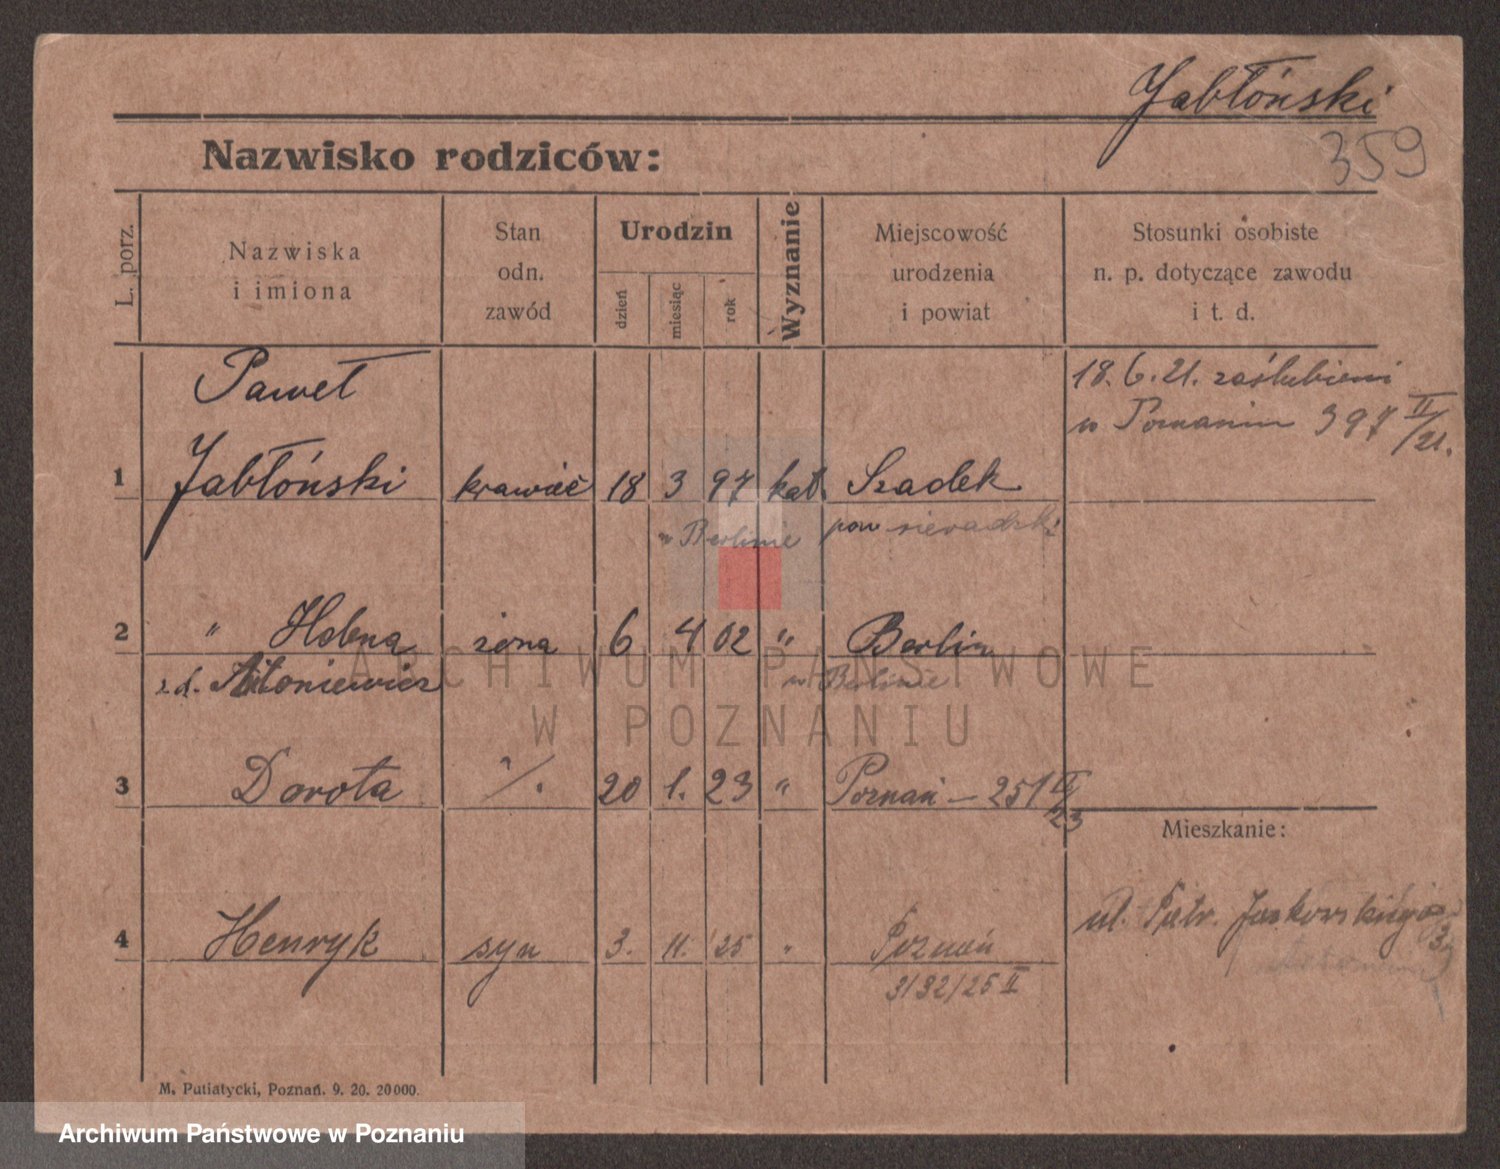 Jabłoński
359
Nazwisko rodziców:
L. porz.
Nazwiska
i imiona
Stan
odn.
zawód
Urodzin
dzień
miesiąc
rok
Wyznanie
Miejscowość
urodzenia
i powiat
Stosunki osobiste
n. p. dotyczące zawodu
i t. d.
Paweł
18. 6. 21. zaślubieni
w Poznaniu 397 II/21.
1 Jabłoński krawiec 18 3 97 kat. Szadek
w Berlinie pow sieradzki
2 " Helena żona 6 4 02 " Berlin
z d. Antoniewicz w Berlinie
ARCHIWUM PAŃSTWOWE
W POZNANIU
3 Dorota 20 1. 23 " Poznań - 251 II/23
Mieszkanie:
ul. Piotr.
4 Henryk syn 3. 11. 25 " Poznań
3132/25 II
M. Putiatycki, Poznań. 9. 20. 20000.
Archiwum Państwowe w Poznaniu